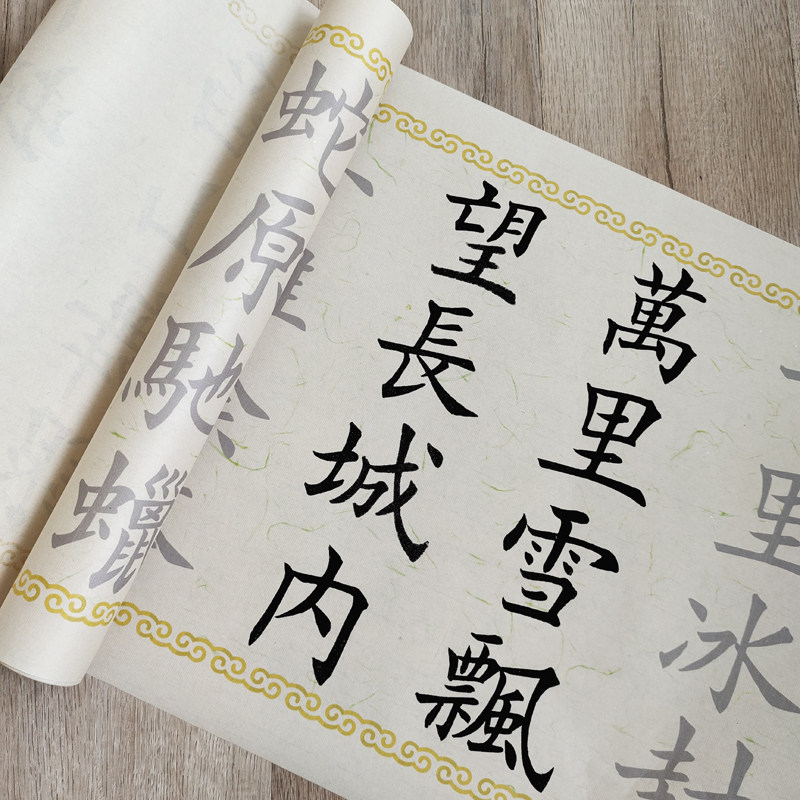 里冰封
萬里雪飄
望長城内
蛇原馳蠟